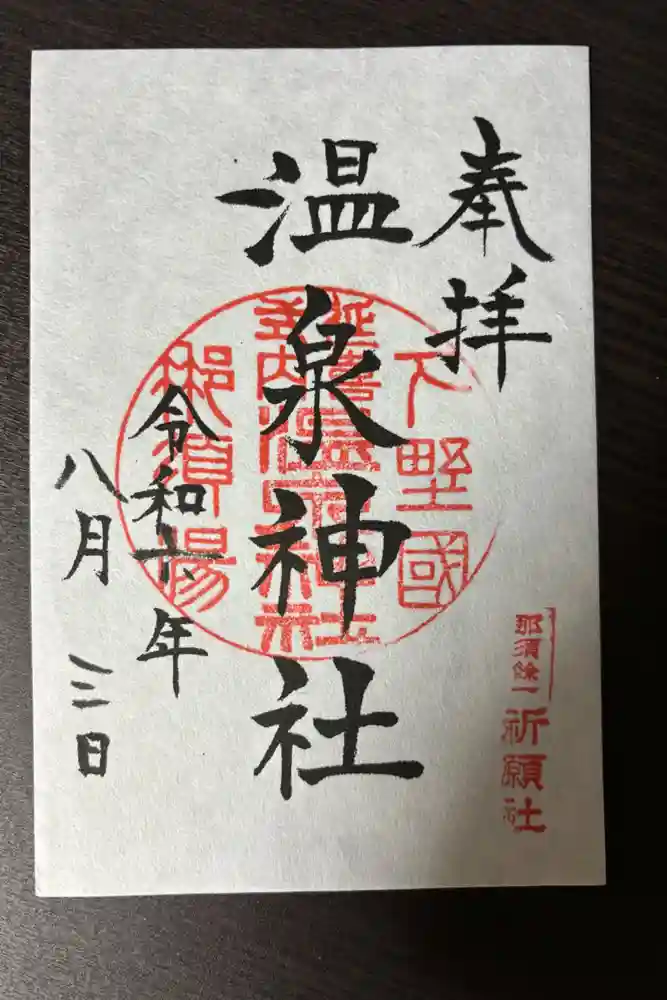 奉拝
温泉神社
令和六年
八月三日
下野國
延喜
式内
温泉神社
那須湯
那須餘一
祈願社